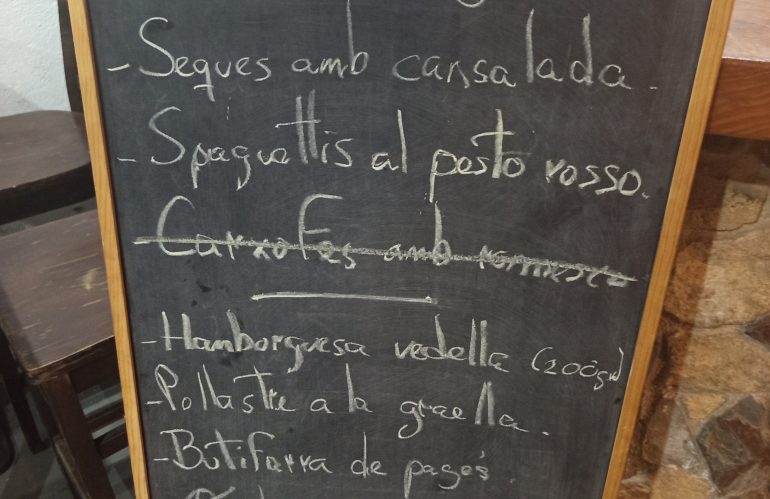 - Seques amb cansalada.
- Spaguettis al pesto rosso.
Carxofes amb romesco
- Hamborguesa vedella (200gr)
- Pollastre a la graella.
- Botifarra de pagès.